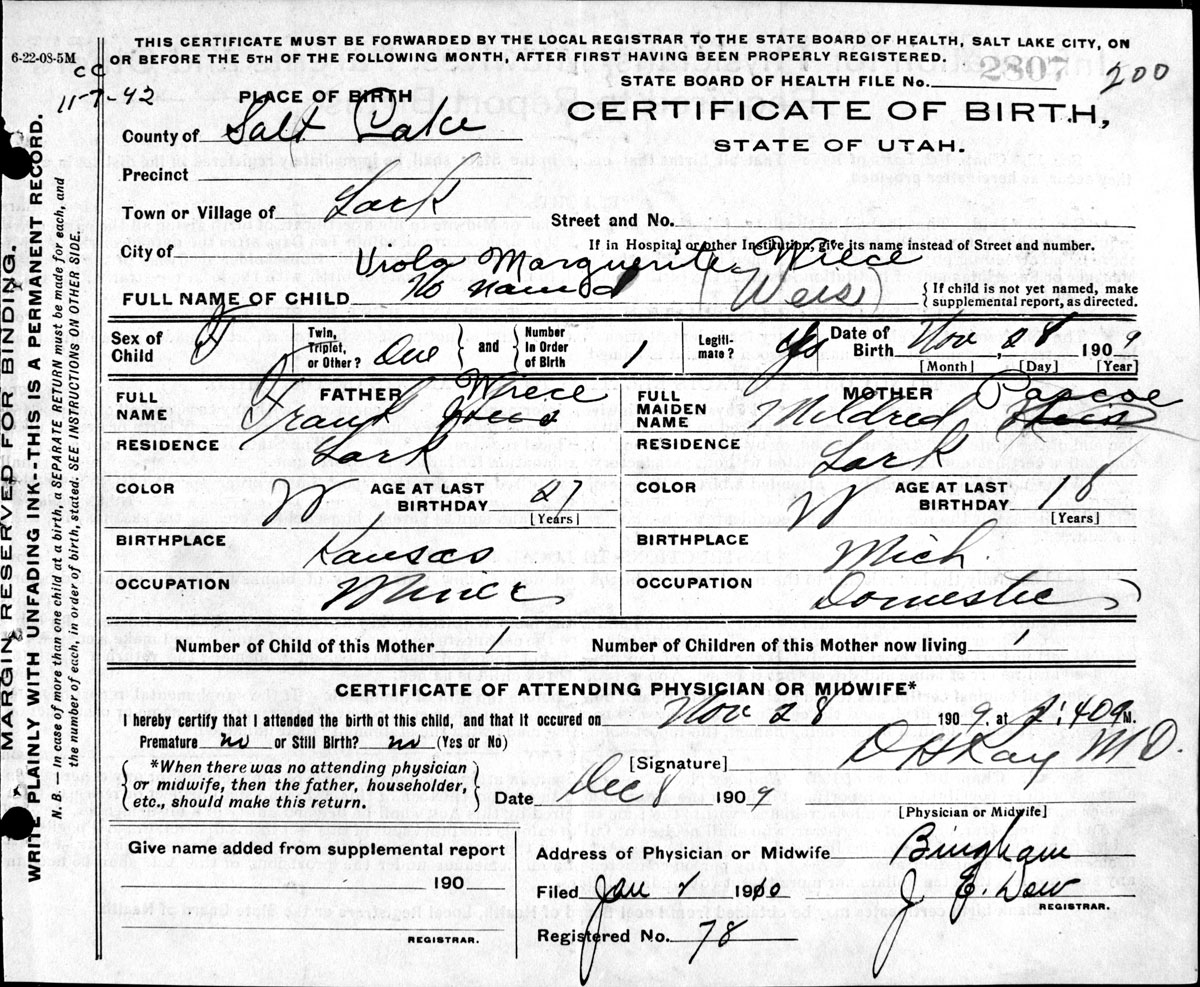 THIS CERTIFICATE MUST BE FORWARDED BY THE LOCAL REGISTRAR TO THE STATE BOARD OF HEALTH, SALT LAKE CITY, ON
OR BEFORE THE 5TH OF THE FOLLOWING MONTH, AFTER FIRST HAVING BEEN PROPERLY REGISTERED.
6-22-08-5M
CC
11-7-42
STATE BOARD OF HEALTH FILE No. 2807 200
PLACE OF BIRTH
CERTIFICATE OF BIRTH,
STATE OF UTAH.
County of Salt Lake
Precinct
Town or Village of Lark
Street and No.
If in Hospital or other Institution, give its name instead of Street and number.
City of
Viola Marguerite Wrece
FULL NAME OF CHILD No named (Weis)
{ If child is not yet named, make
supplemental report, as directed.
Sex of Child F
Twin, Triplet, or Other? One } and { Number In Order of Birth 1
Legitimate? Yes
Date of Birth Nov, 28 1909
[Month] [Day] [Year]
FATHER
FULL NAME Frank Wrece
RESIDENCE Lark
COLOR W AGE AT LAST BIRTHDAY 27
[Years]
BIRTHPLACE Kansas
OCCUPATION Miner
MOTHER
FULL MAIDEN NAME Mildred Pascoe
RESIDENCE Lark
COLOR W AGE AT LAST BIRTHDAY
[Years]
BIRTHPLACE Mich.
OCCUPATION Domestic
Number of Child of this Mother 1 Number of Children of this Mother now living 1
CERTIFICATE OF ATTENDING PHYSICIAN OR MIDWIFE*
I hereby certify that I attended the birth of this child, and that it occured on Nov 28 1909, at 2:40 M.
Premature no or Still Birth? no (Yes or No)
{ *When there was no attending physician
or midwife, then the father, householder,
etc., should make this return. }
[Signature] D H Kay M D.
Date Dec 8 1909
[Physician or Midwife]
Give name added from supplemental report
190
REGISTRAR.
Address of Physician or Midwife Bingham
Filed Jan 1910 J. E. Dow
REGISTRAR.
Registered No. 78
MARGIN RESERVED FOR BINDING
WRITE PLAINLY WITH UNFADING INK--THIS IS A PERMANENT RECORD.
N. B. In case of more than one child at a birth, a SEPARATE RETURN must be made for each, and
the number of each, in order of birth, stated. SEE INSTRUCTIONS ON OTHER SIDE.